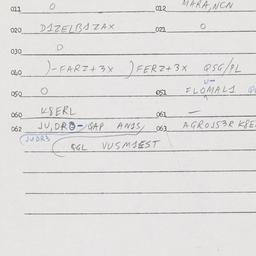 011 O 012 MARA, NCN
020 D1ZELB1ZAX 021 O
030 O
040 )-FARZ+3X )FERZ+3X QSG/PL
050 O 051 FLOMAL1
060 K8ERL 061 —
062 JU,DR8-GAP AN1S, 063 AGROJS3R K8E
JUDR3 ( SGL VUSM1EST